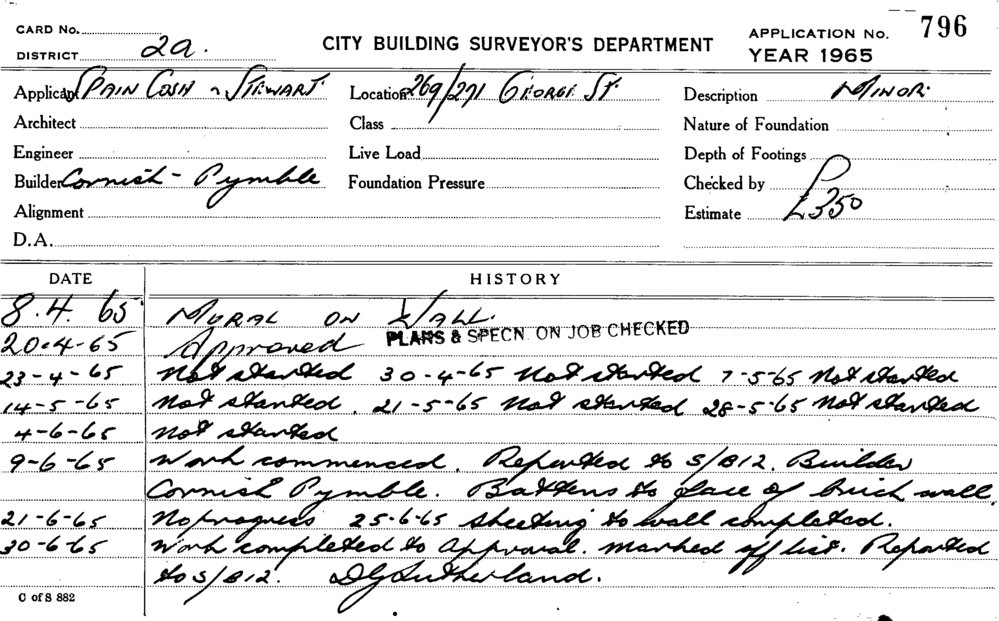 796
CARD No.
DISTRICT 2a.
CITY BUILDING SURVEYOR'S DEPARTMENT
APPLICATION No.
YEAR 1965
Applicant SPAIN COSH & STEWART. Location 269/271 GEORGE ST. Description MINOR.
Architect Class Nature of Foundation
Engineer Live Load Depth of Footings
Builder Cornish - Pymble Foundation Pressure Checked by
Alignment Estimate £350
D.A.
DATE HISTORY
8.4.65 MURAL ON WALL.
20-4-65 Approved PLANS & SPECN. ON JOB CHECKED
23-4-65 Not started 30-4-65 Not started 7-5-65 Not started
14-5-65 Not started. 21-5-65 Not started 28-5-65 Not started
4-6-65 Not started
9-6-65 Work commenced. Reported to S/B12. Builder
Cornish Pymble. Battens to face of brick wall.
21-6-65 No progress 25-6-65 sheeting to wall completed.
30-6-65 Work completed to approval. marked off list. Reported
to S/B12. DGSutherland.
C of S 882